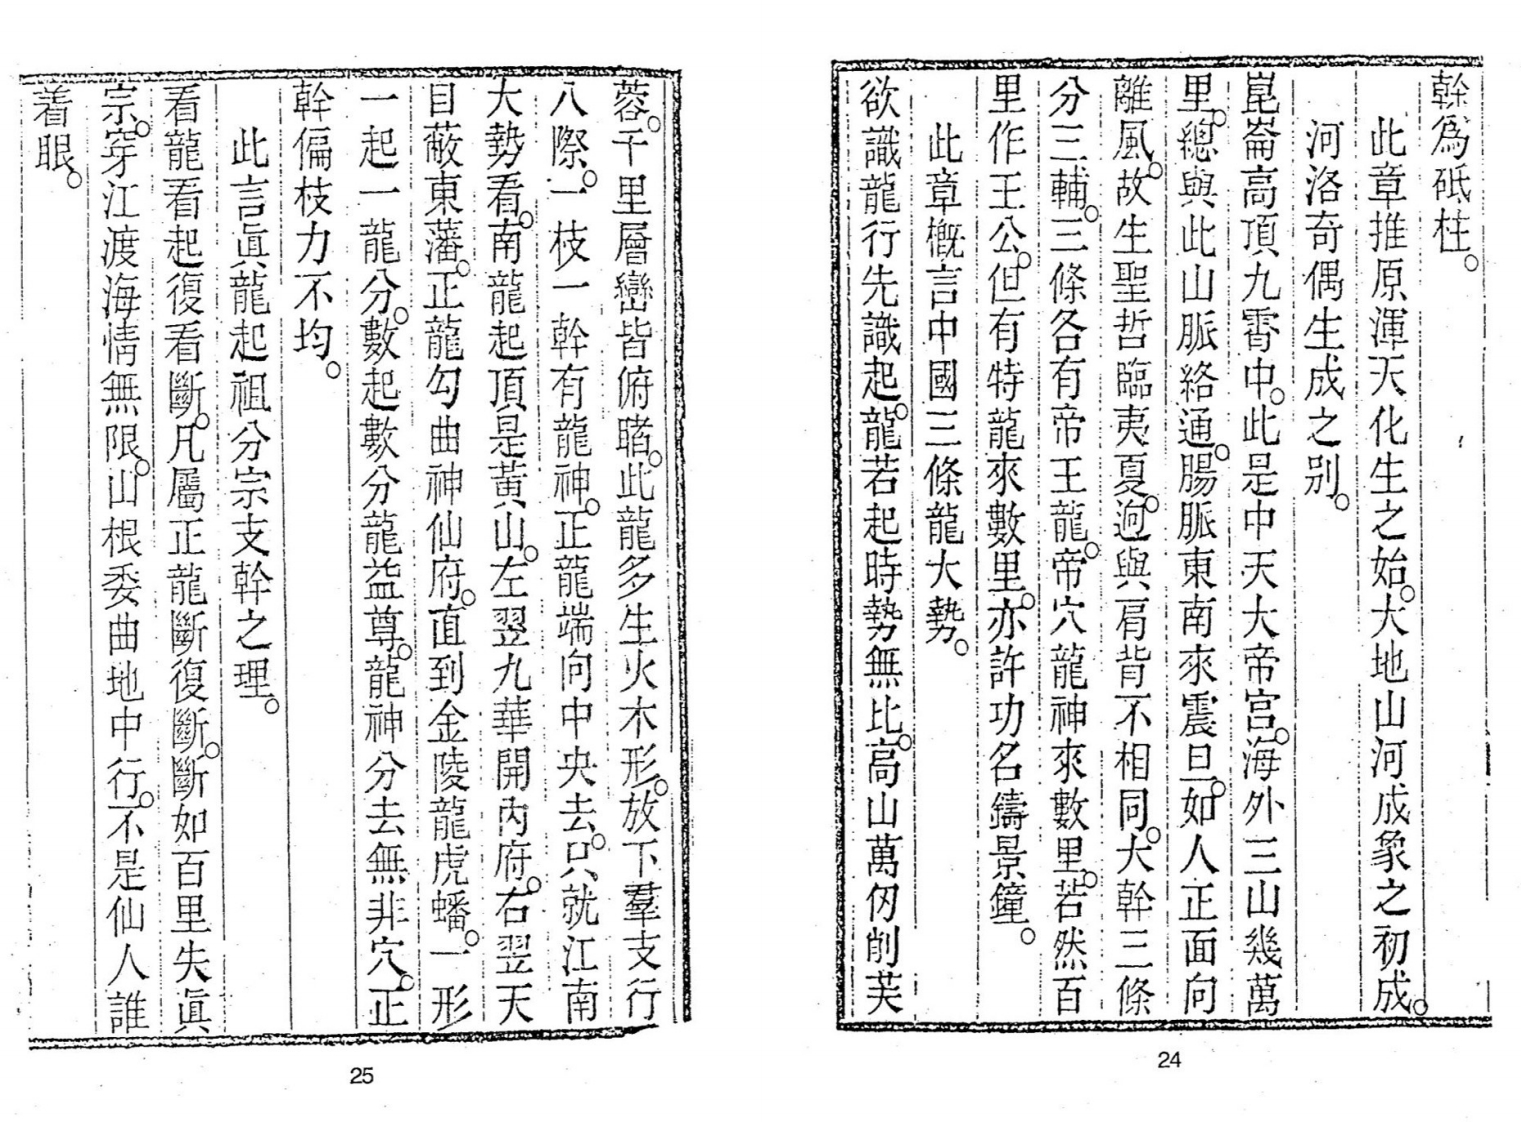 幹為砥柱。
此章推原渾天化生之始。大地山河成象之初成。
河洛奇偶生成之别。
崑崙高頂九霄中。此是中天大帝宮。海外三山幾萬
里。總與此山脈絡通。腸脈東南來震旦。如人正面向
離風。故生聖哲臨夷夏。逈與肩背不相同。大幹三條
分三輔。三條各有帝王龍。帝穴龍神來數里。若然百
里作王公。但有特龍來數里。亦許功名鑄景鐘。
此章概言中國三條龍大勢。
欲識龍行先識起。龍若起時勢無比。高山萬仞削芙
24
蓉。千里層巒皆俯睹。此龍多生火木形。放下羣支行
八際。一枝一幹有龍神。正龍端向中央去。只就江南
大勢看。南龍起頂是黃山。左翌九華開內府。右翌天
目蔽東藩。正龍勾曲神仙府。直到金陵龍虎蟠。一形
一起一龍分。數起數分龍益尊。龍神分去無非穴。正
幹偏枝力不均。
此言眞龍起祖分宗支幹之理。
看龍看起復看斷。凡屬正龍斷復斷。斷如百里失眞
宗。穿江渡海情無限。山根委曲地中行。不是仙人誰
着眼。
25